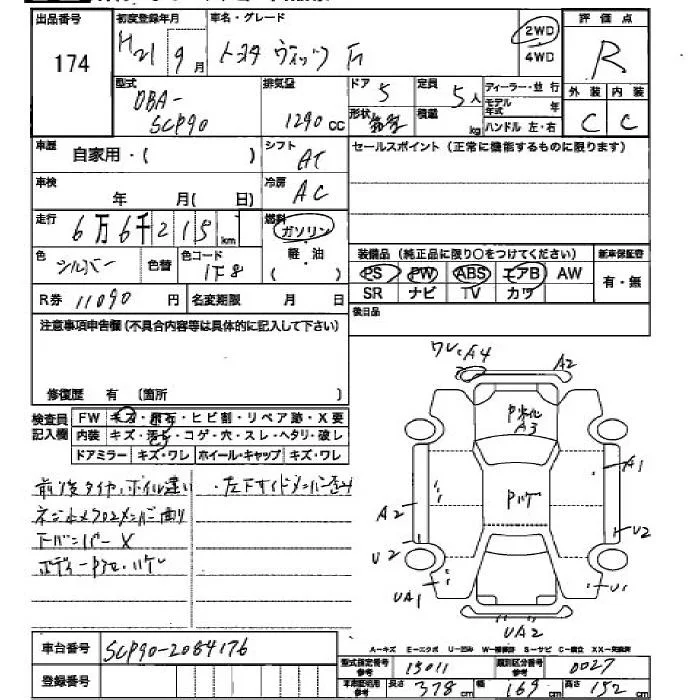 出品番号
初度登録年月
車名・グレード
2WD
4WD
評価点
174
H21 9月
トヨタ ヴィッツ F
R
型式
排気量
ドア
定員
ディーラー・並行
外装 内装
DBA-
SCP90
1290 CC
5
5人
モデル年式 年
形状
積載 kg
ハンドル 左・右
C C
車歴 自家用・( )
シフト
AT
セールスポイント(正常に機能するものに限ります)
車検 年 月( 日)
冷房
AC
走行 6万6千215 km
燃料
ガソリン
軽・油
( )
色 シルバー
色替
色コード
1F8
装備品(純正品に限り○をつけてください)
新車保証書
PS PW ABS エアB AW
SR ナビ TV カワ
有・無
R券 11090 円
名変期限 月 日
後日品
注意事項申告欄(不具合内容等は具体的に記入して下さい)
修復歴 有 〔箇所 〕
検査員記入欄
FW キズ・飛石・ヒビ割・リペア跡・X要
内装 キズ・汚れ・コゲ・穴・スレ・ヘタリ・破レ
ドアミラー キズ・ワレ ホイール・キャップ キズ・ワレ
ワレ A4
A2
A3
A1
A2
Pハゲ
U2
U2
UA1
U1
UA2
前後タイヤ、ホイル違い
・左下サイドメンバー歪み
下バンパーX
A-キズ E-エクボ U-凹み W-補修跡 S-サビ C-腐食 XX-交換済
車台番号 SCP90-2084176
登録番号
型式指定番号 参考 15011
類別区分番号 参考 0027
車両証明用 参考 長さ 378 cm 幅 169 cm 高さ 152 cm